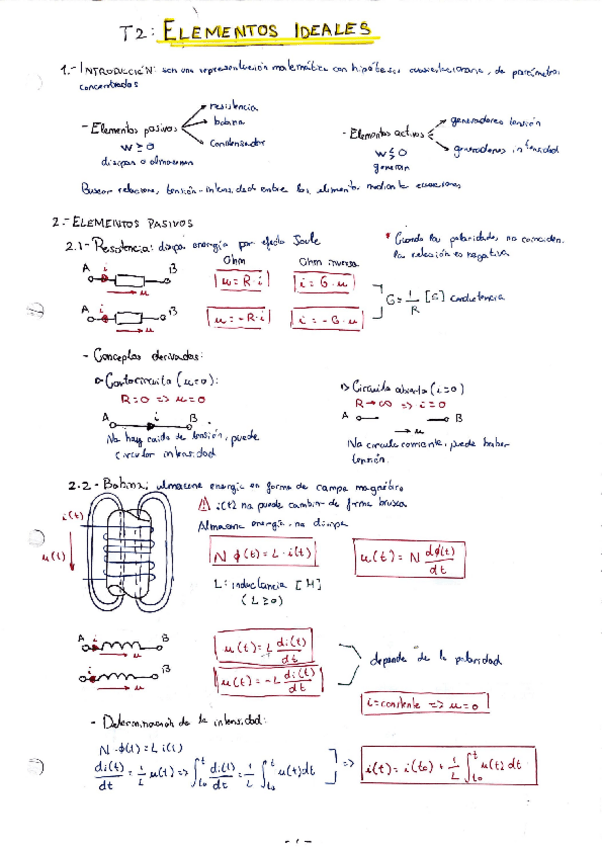 T2: ELEMENTOS IDEALES
1.- INTRODUCCIÓN: son una representación matemática con hipótesis cuasiestacionaria, de parámetros
concentrados
- Elementos pasivos
resistencia
bobina
condensador
W ≥ 0
disipan o almacenan
- Elementos activos
generadores tensión
generadores intensidad
W ≤ 0
generan
Buscar relaciones tensión-intensidad entre los elementos mediante ecuaciones
2.- ELEMENTOS PASIVOS
2.1- Resistencia: disipa energía por efecto Joule
* Cuando las polaridades no coinciden
la relación es negativa
Ohm
Ohm inversa
A i B
u
u = R·i
i = G·u
A i B
u
u = -R·i
i = -G·u
G = 1/R [S] conductancia
- Conceptos derivados:
Cortocircuito (u=0):
R=0 => u=0
A i B
No hay caída de tensión, puede
circular intensidad
Circuito abierto (i=0)
R→∞ => i=0
A B
u
No circula corriente, puede haber
tensión.
2.2- Bobina: almacena energía en forma de campo magnético
i(t)
u(t)
i(t) no puede cambiar de forma brusca
Almacena energía, no disipa
N ϕ(t) = L · i(t)
u(t) = N dϕ(t)/dt
L: inductancia [H]
(L ≥ 0)
A i B
u
u(t) = L di(t)/dt
A i B
u
u(t) = -L di(t)/dt
depende de la polaridad
i = constante => u = 0
- Determinación de la intensidad:
N·ϕ(t) = L i(t)
di(t)/dt = 1/L u(t) => ∫t0^t di(t)/dt = 1/L ∫t0^t u(t) dt => i(t) = i(t0) + 1/L ∫t0^t u(t) dt
- 1 -